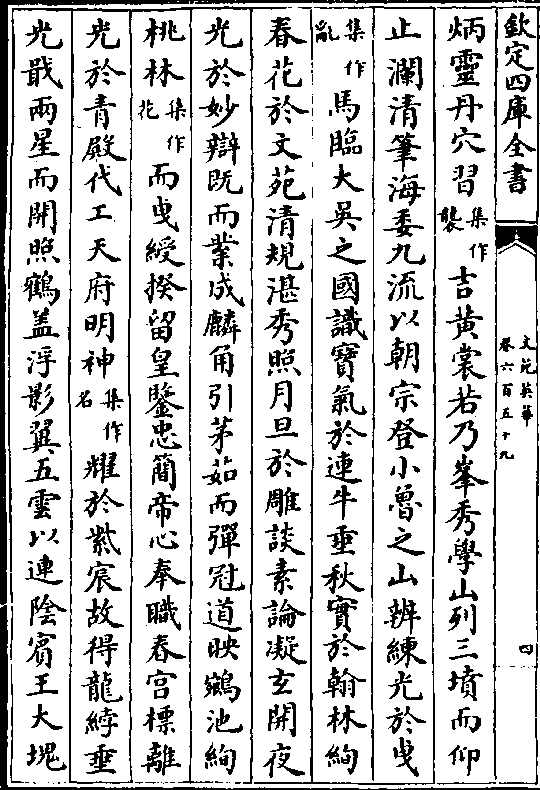 欽定四庫全書
文苑英華
卷六百五十九
四
炳靈丹穴習集作襲吉黄裳若乃峯秀學山列三墳而仰
止瀾清筆海委九流以朝宗登小魯之山辨練光於曳
集作亂馬臨大吳之國識寶氣於連牛垂秋實於翰林絢
春花於文苑清規湛秀照月旦於雕談素論凝玄開夜
光於妙辯既而業成麟角引茅茹而彈冠道映鵷池絢
桃林集作花而曳綬揆留皇鑒忠簡帝心奉職春宫標離
光於青殿代工天府明神集作名耀於紫宸故得龍綍垂
光戩兩星而開照鶴盖浮影翼五雲以連陰賔王大塊